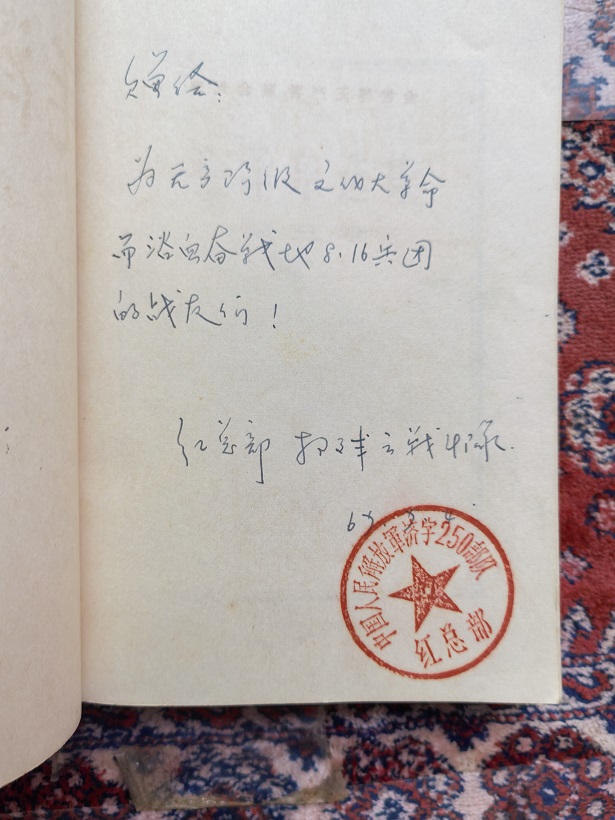 赠给:
为无产阶级文化大革命
而浴血奋战地8.16兵团
的战友们!
红总部 战斗队.
67
中国人民解放军济字250部队
红总部